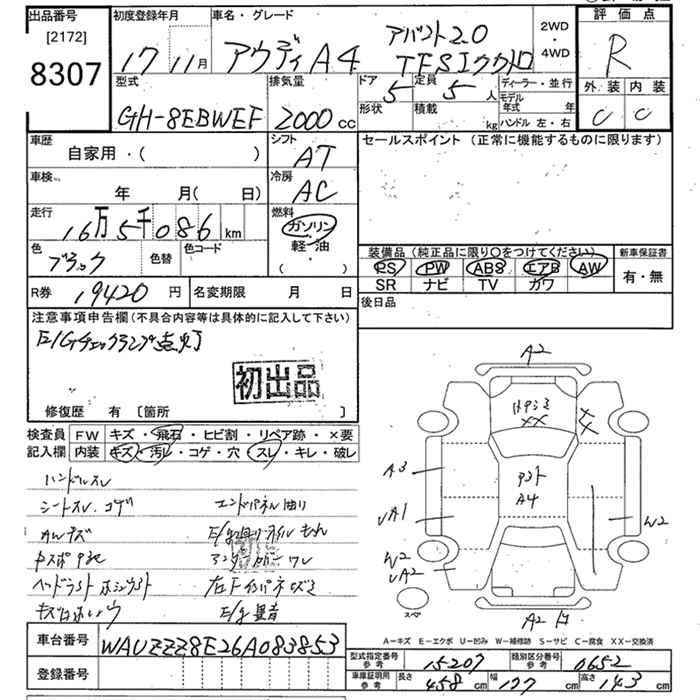 出品番号
[2172]
8307
初度登録年月
17 11月
車名・グレード
アウディA4
アバント2.0
TFSIクワトロ
2WD
・
4WD
評価点
R
外装 内装
C C
型式
GH-8EBWEF
排気量
2000cc
ドア
5
形状
定員
5人
積載
kg
ディーラー・並行
モデル年式 年
ハンドル 左・右
車歴
自家用・( )
シフト
AT
セールスポイント (正常に機能するものに限ります)
車検
年 月( 日)
冷房
AC
走行
16万5千086km
燃料
ガソリン・
軽・油
( )
色
ブラック
色替
色コード
装備品(純正品に限り○をつけてください)
PS PW ABS エアB AW
SR ナビ TV カワ
新車保証書
有・無
R券
19420円
名変期限 月 日
後日品
注意事項申告欄(不具合内容等は具体的に記入して下さい)
E/Gチェックランプ点灯
初出品
修復歴 有 [箇所 ]
検査員
記入欄
FW キズ・飛石・ヒビ割・リペア跡・×要
内装 キズ・汚レ・コゲ・穴・スレ・キレ・破レ
ハンドルスレ
シートスレ、コゲ
エンドパネル曲り
E/G廻りオイルもれ
アンダーカバーワレ
E/G異音
A2
XX
A3
A4
√A1
W2
W2
√A2
A2
スペア
A-キズ E-エクボ U-凹み W-補修跡 S-サビ C-腐食 XX-交換済
車台番号
WAUZZZ8E26A083853
登録番号
型式指定番号
参考
15207
類別区分番号
参考
0652
車庫証明用
参考
長さ 458cm
幅 177cm
高さ 143cm